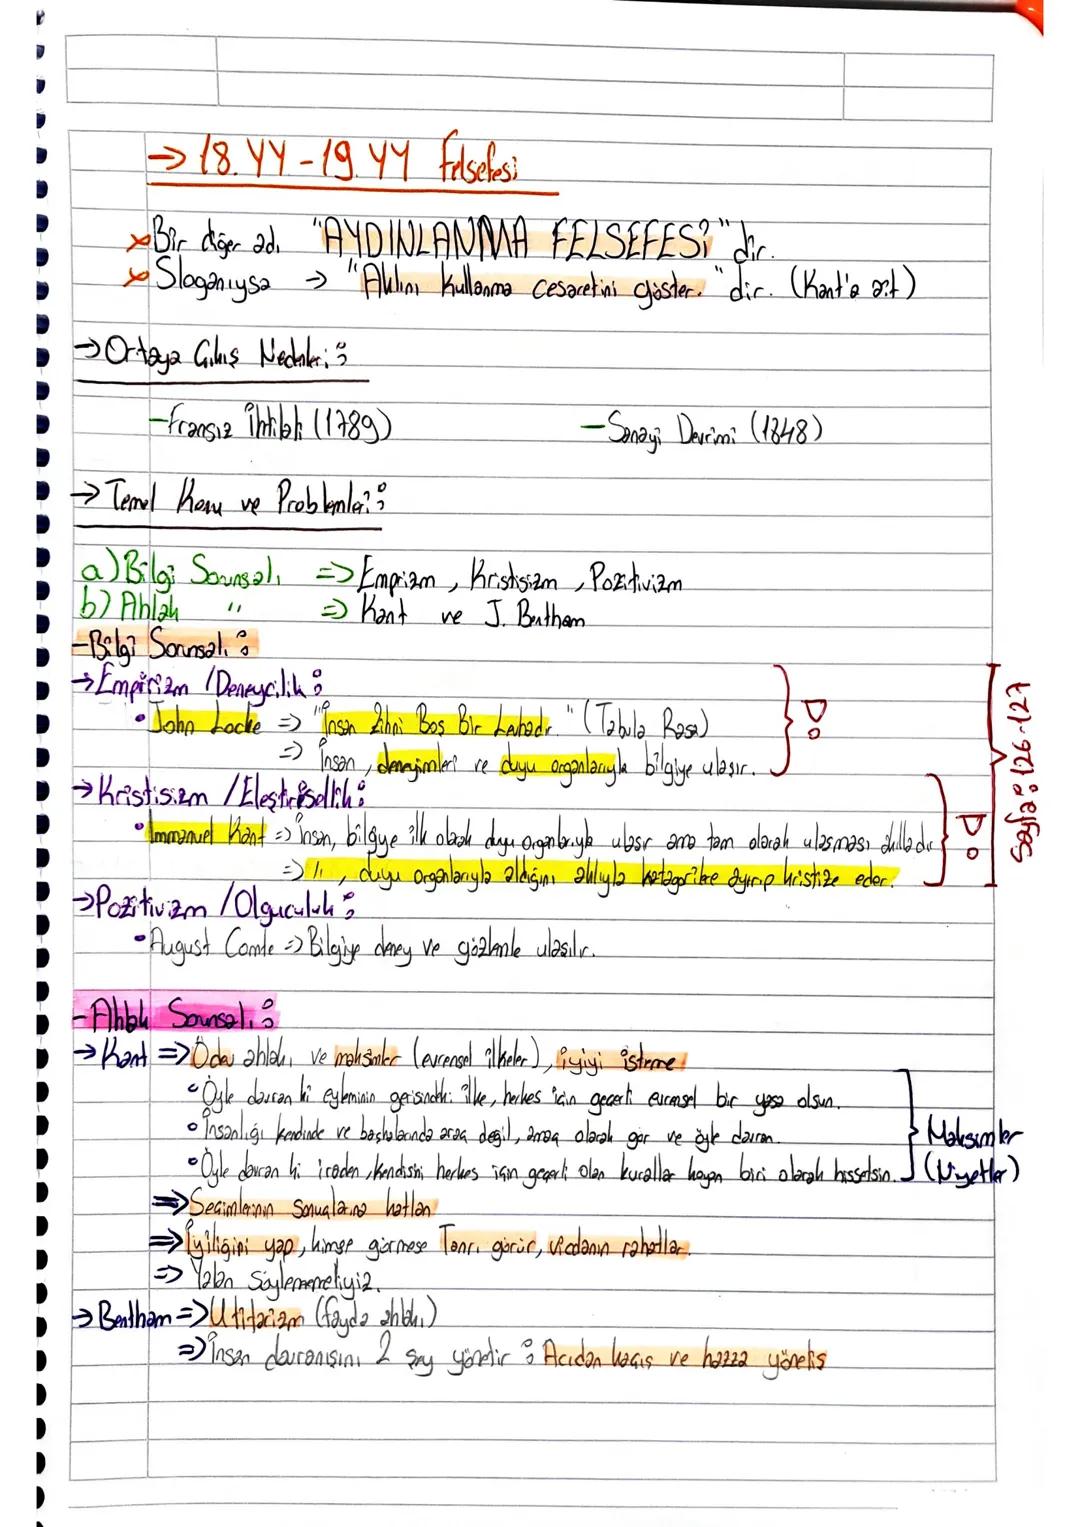 → 18.YY - 19.YY Felsefesi
× Bir diğer adı "AYDINLANMA FELSEFESİ" dir.
× Sloganıysa → "Aklını kullanma cesaretini göster." dir. (Kant'a ait)
→ Ortaya Çıkış Nedenleri :
- Fransız İhtilali (1789) - Sanayi Devrimi (1848)
→ Temel Konu ve Problemleri :
a) Bilgi Sorunsalı => Emprizm, Kristisizm, Pozitivizm
b) Ahlak " => Kant ve J. Bentham
- Bilgi Sorunsalı :
→ Empirizm / Deneycilik :
• John Locke => "İnsan Zihni Boş Bir Levhadır." (Tabula Rasa)
=> İnsan, deneyimleri ve duyu organlarıyla bilgiye ulaşır.
→ Kristisizm / Eleştirisellik :
• Immanuel Kant => İnsan, bilgiye ilk olarak duyu organlarıyla ulaşır ama tam olarak ulaşması akılladır
=> " , duyu organlarıyla aldığını aklıyla kategorilere ayırıp kristize eder.
Sayfa : 126-127
→ Pozitivizm / Olguculuk :
• August Comte => Bilgiye deney ve gözlemle ulaşılır.
- Ahlak Sorunsalı :
→ Kant => Ödev ahlakı ve maksimler (evrensel ilkeler), iyiyi isteme
• Öyle davran ki eyleminin gerisindeki ilke, herkes için geçerli evrensel bir yasa olsun.
• İnsanlığı kendinde ve başkalarında araç değil, amaç olarak gör ve öyle davran.
• Öyle davran ki iraden, kendisini herkes için geçerli olan kurallar koyan biri olarak hissetsin.
Maksimler
(Niyetler)
=> Seçimlerinin sonuçlarına katlan
=> İyiliğini yap, kimse görmese Tanrı görür, vicdanın rahatlar.
=> Yalan söylememeliyiz.
→ Bentham => Utitarizm (fayda ahlakı)
=> İnsan davranışını 2 şey yönetir : Acıdan kaçış ve hazza yöneliş